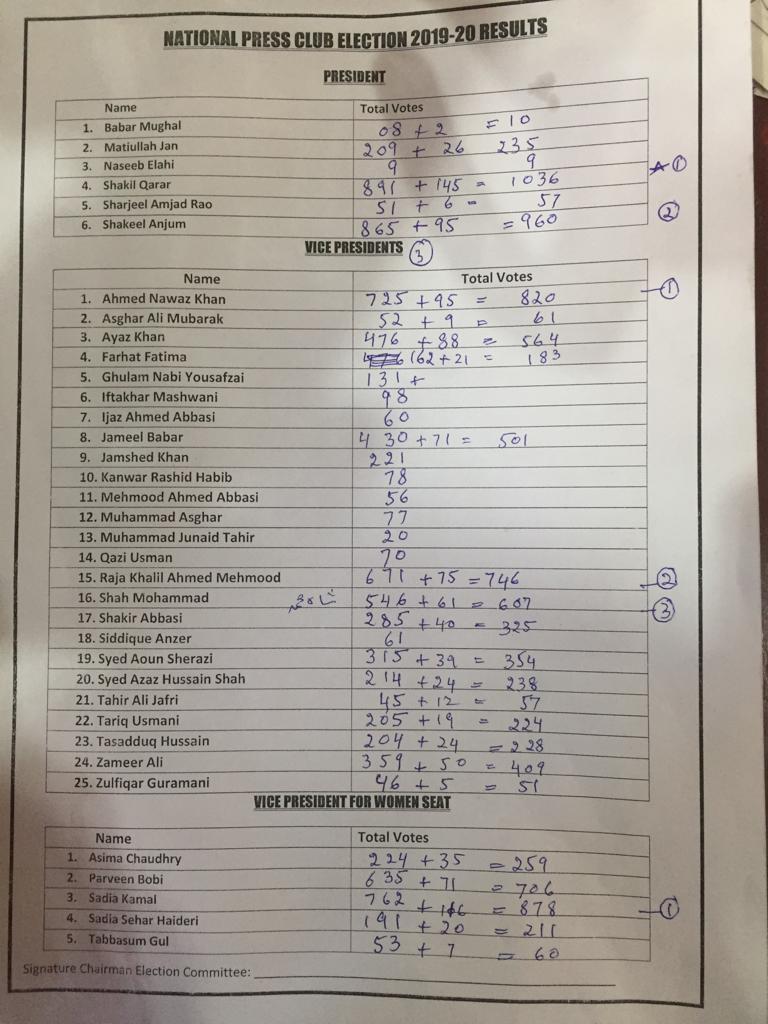 NATIONAL PRESS CLUB ELECTION 2019-20 RESULTS
PRESIDENT
Name Total Votes
1. Babar Mughal 08 + 2 = 10
2. Matiullah Jan 209 + 26 235
3. Naseeb Elahi 9 9
4. Shakil Qarar 891 + 145 = 1036 ①
5. Sharjeel Amjad Rao 51 + 6 = 57
6. Shakeel Anjum 865 + 95 = 960 ②
VICE PRESIDENTS ③
Name Total Votes
1. Ahmed Nawaz Khan 725 + 95 = 820 ①
2. Asghar Ali Mubarak 52 + 9 = 61
3. Ayaz Khan 476 + 88 = 564
4. Farhat Fatima 162 + 21 = 183
5. Ghulam Nabi Yousafzai 131 +
6. Iftakhar Mashwani 98
7. Ijaz Ahmed Abbasi 60
8. Jameel Babar 430 + 71 = 501
9. Jamshed Khan 221
10. Kanwar Rashid Habib 78
11. Mehmood Ahmed Abbasi 56
12. Muhammad Asghar 77
13. Muhammad Junaid Tahir 20
14. Qazi Usman 70
15. Raja Khalil Ahmed Mehmood 671 + 75 = 746 ②
16. Shah Mohammad 546 + 61 = 607 ③
17. Shakir Abbasi 285 + 40 = 325
18. Siddique Anzer 61
19. Syed Aoun Sherazi 315 + 39 = 354
20. Syed Azaz Hussain Shah 214 + 24 = 238
21. Tahir Ali Jafri 45 + 12 = 57
22. Tariq Usmani 205 + 19 = 224
23. Tasadduq Hussain 204 + 24 = 228
24. Zameer Ali 359 + 50 = 409
25. Zulfiqar Guramani 46 + 5 = 51
VICE PRESIDENT FOR WOMEN SEAT
Name Total Votes
1. Asima Chaudhry 224 + 35 = 259
2. Parveen Bobi 635 + 71 = 706
3. Sadia Kamal 762 + 116 = 878 ①
4. Sadia Sehar Haideri 191 + 20 = 211
5. Tabbasum Gul 53 + 7 = 60
Signature Chairman Election Committee: